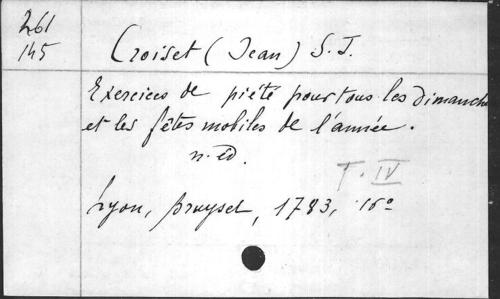 261
145
Croiset (Jean) S. J.
Exercices de piété pour tous les dimanche
et les fêtes mobiles de l'année.
n. éd.
T. IV
Lyon, Bruyset, 1783, 16º